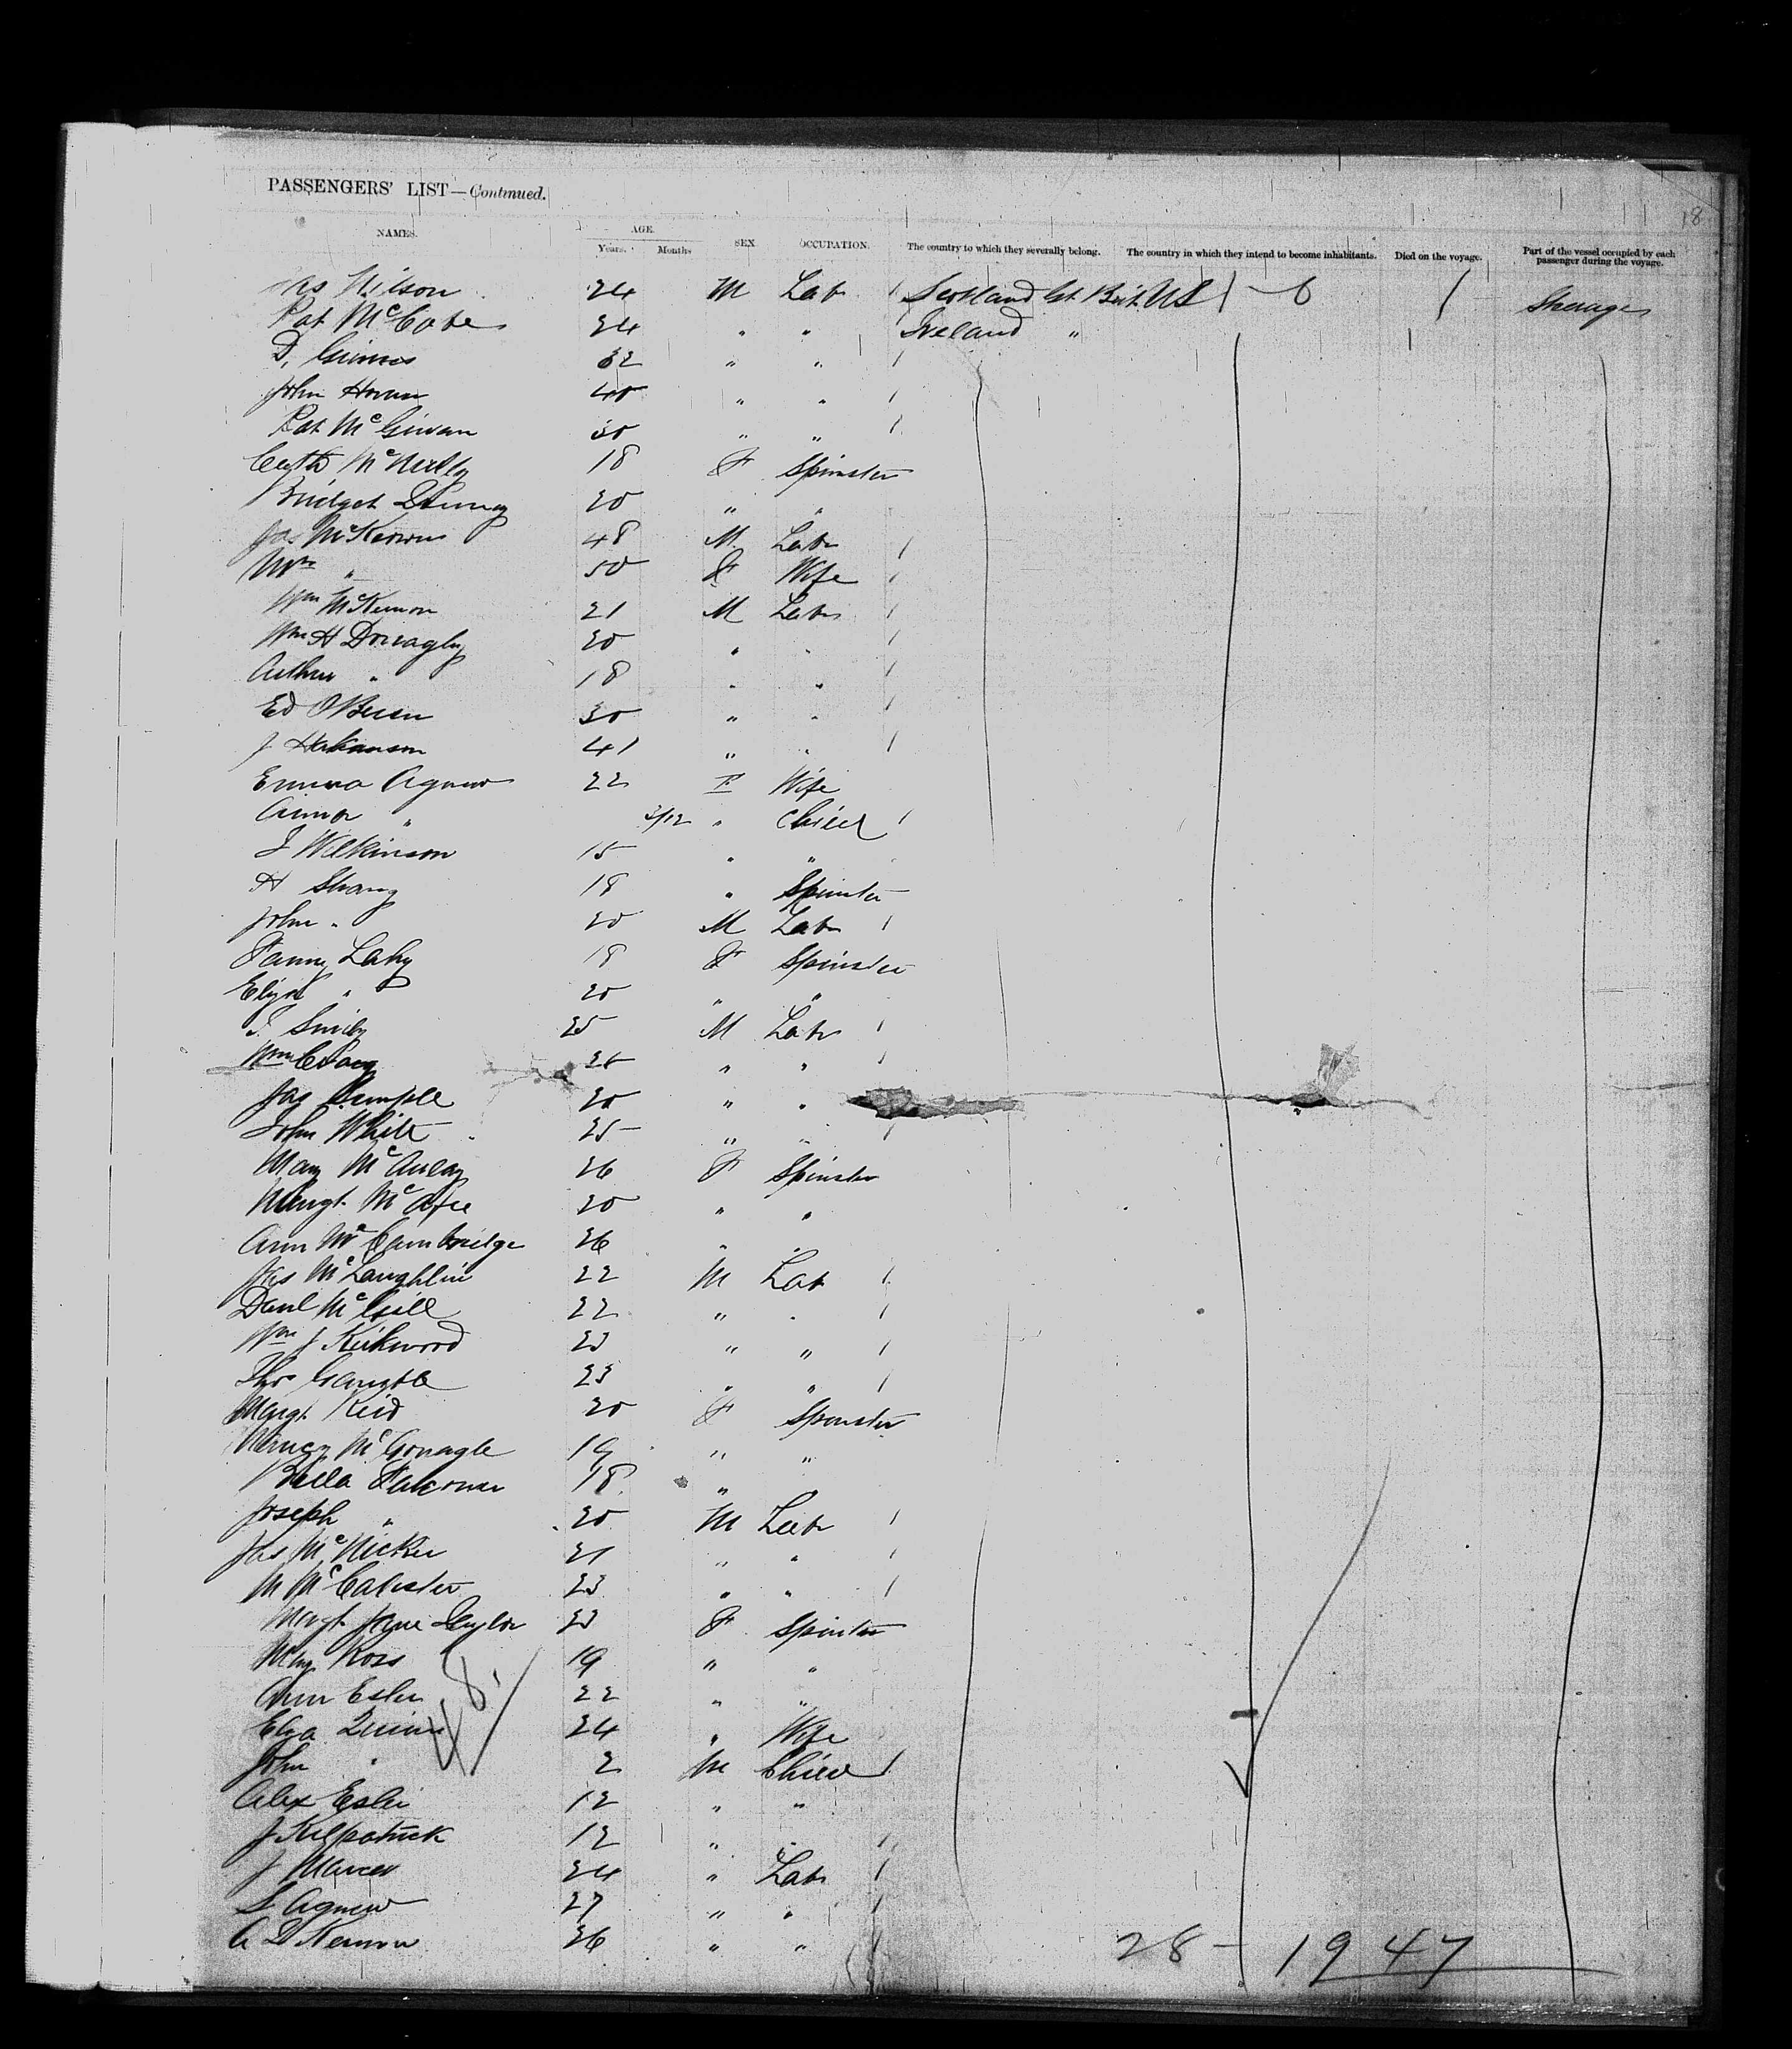 18
PASSENGERS' LIST—Continued.
NAMES. AGE. SEX. OCCUPATION. The country to which they severally belong. The country in which they intend to become inhabitants. Died on the voyage. Part of the vessel occupied by each passenger during the voyage.
Years. Months
Wilson 24 M Lab Scotland Gt Brit US Steerage
Pat McCabe 24 " " Ireland "
D. 32 " "
John 40 " "
Pat McGivern 30 " "
Cath McNeilly 18 F Spinster
Bridget 20 " "
Jas McKernon 48 M Labr
Mrs " 50 F Wife
Wm McKernon 21 M Labr
Wm H Donaghy 20 " "
Arthur " 18 " "
Ed OBrien 30 " "
J Hakanson 41 " "
Emma Agnew 22 F Wife
Annor " 3/12 " Child
J Wilkinson 15 " "
H Strang 18 " Spinster
John " 20 M Labr
Fanny Lahy 18 F Spinster
Eliza " 20 " "
J. Smiley 25 M Labr
Wm Craig 25 " "
Jas Semple 20 " "
John White 25 " "
Mary McAulay 26 F Spinster
Margt McAfee 20 " "
Ann McCambridge 26 " "
Jas McLaughlin 22 M Lab
Danl McGill 22 " "
Wm J Kirkwood 23 " "
Thos Gamble 23 " "
Margt Reid 20 F Spinster
Nancy McGonagle 19 " "
Bella Falconer 18 "
Joseph " 20 M Labr
Jas McNicker 21 " "
M McCalister 23 " "
Margt Jane Taylor 23 F Spinster
Mary Ross 19 " "
Ann Esler 22 " "
Eliza Quinn 24 " Wife
John " 2 M Child
Alex Esler 12 " "
J Kilpatrick 12 " "
J 24 " Labr
S Agnew 27 " "
A D Kernon 26 " "
48
28 - 19 47